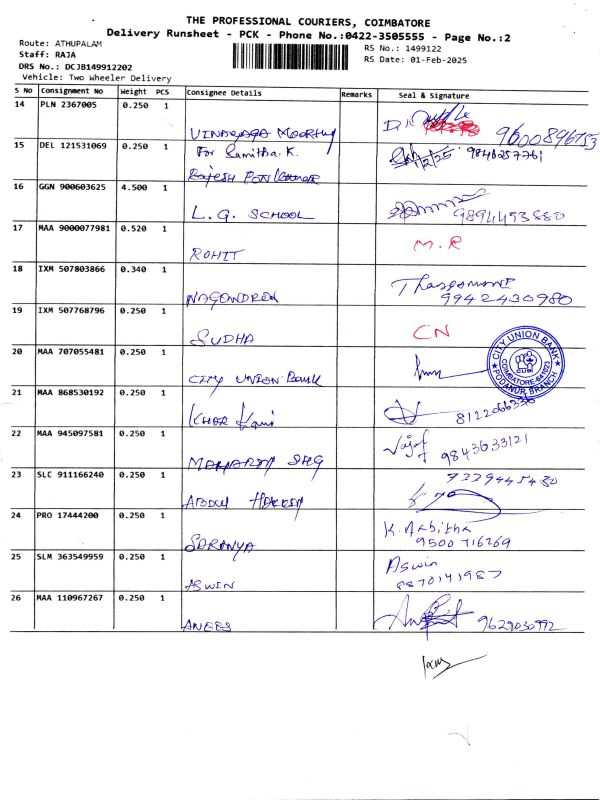 THE PROFESSIONAL COURIERS, COIMBATORE
Delivery Runsheet - PCK - Phone No.:0422-3505555 - Page No.:2
Route: ATHUPALAM
RS No.: 1499122
Staff: RAJA
RS Date: 01-Feb-2025
DRS No.: DCJB149912202
Vehicle: Two Wheeler Delivery
S No Consignment No Weight PCS Consignee Details Remarks Seal & Signature
14 PLN 2367005 0.250 1
VINAYAGA MOORTHY 9600896753
15 DEL 121531069 0.250 1 For Ramitha. K. 1/2/25 9846257761
RAJESH
16 GGN 900603625 4.500 1
L. G. SCHOOL 9894493880
17 MAA 9000077981 0.520 1
ROHIT M.R
18 IXM 507803866 0.340 1
NAGENDREN 9942430980
19 IXM 507768796 0.250 1
SUDHA CN
20 MAA 707055481 0.250 1
CITY UNION Bank
CITY UNION BANK
COIMBATORE-641023
PODANUR BRANCH
21 MAA 868530192 0.250 1
8122066336
22 MAA 945097581 0.250 1
9843633121
23 SLC 911166240 0.250 1
ABDUL HAKKIM 9229445480
24 PRO 17444200 0.250 1
SARANYA K. Nabitha
9500716269
25 SLM 363549959 0.250 1
ASWIN Aswin
8870141987
26 MAA 110967267 0.250 1
ANEES 9629030992